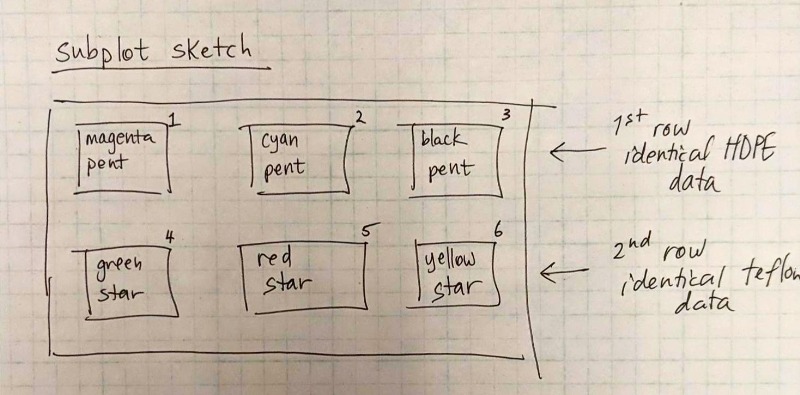 subplot sketch
1
magenta
pent
2
cyan
pent
3
black
pent
1st row
identical HDPE
data
4
green
star
5
red
star
6
yellow
star
2nd row
identical teflon
data